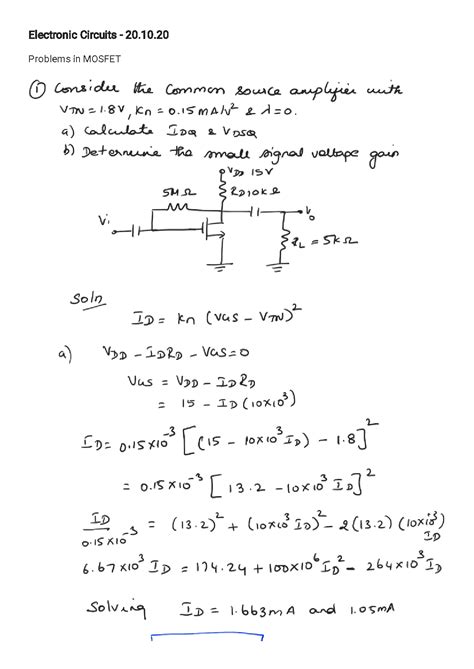 Electronic Circuits - 20.10.20
Problems in MOSFET
① Consider the Common source amplifier with
VTN = 1.8V, Kn = 0.15 mA/V² & λ = 0.
a) Calculate IDQ & VDSQ
b) Determine the small signal voltage gain
VDD 15V
5MΩ
RD 10KΩ
Vi
Vo
RL = 5KΩ
Soln
ID = Kn (VGS - VTN)²
a) VDD - IDRD - VGS = 0
VGS = VDD - IDRD
= 15 - ID (10×10³)
ID = 0.15×10⁻³ [(15 - 10×10³ ID) - 1.8]²
= 0.15×10⁻³ [13.2 - 10×10³ ID]²
ID / 0.15×10⁻³ = (13.2)² + (10×10³ ID)² - 2(13.2) (10×10³) ID
6.67×10³ ID = 174.24 + 100×10⁶ ID² - 264×10³ ID
Solving ID = 1.663mA and 1.05mA